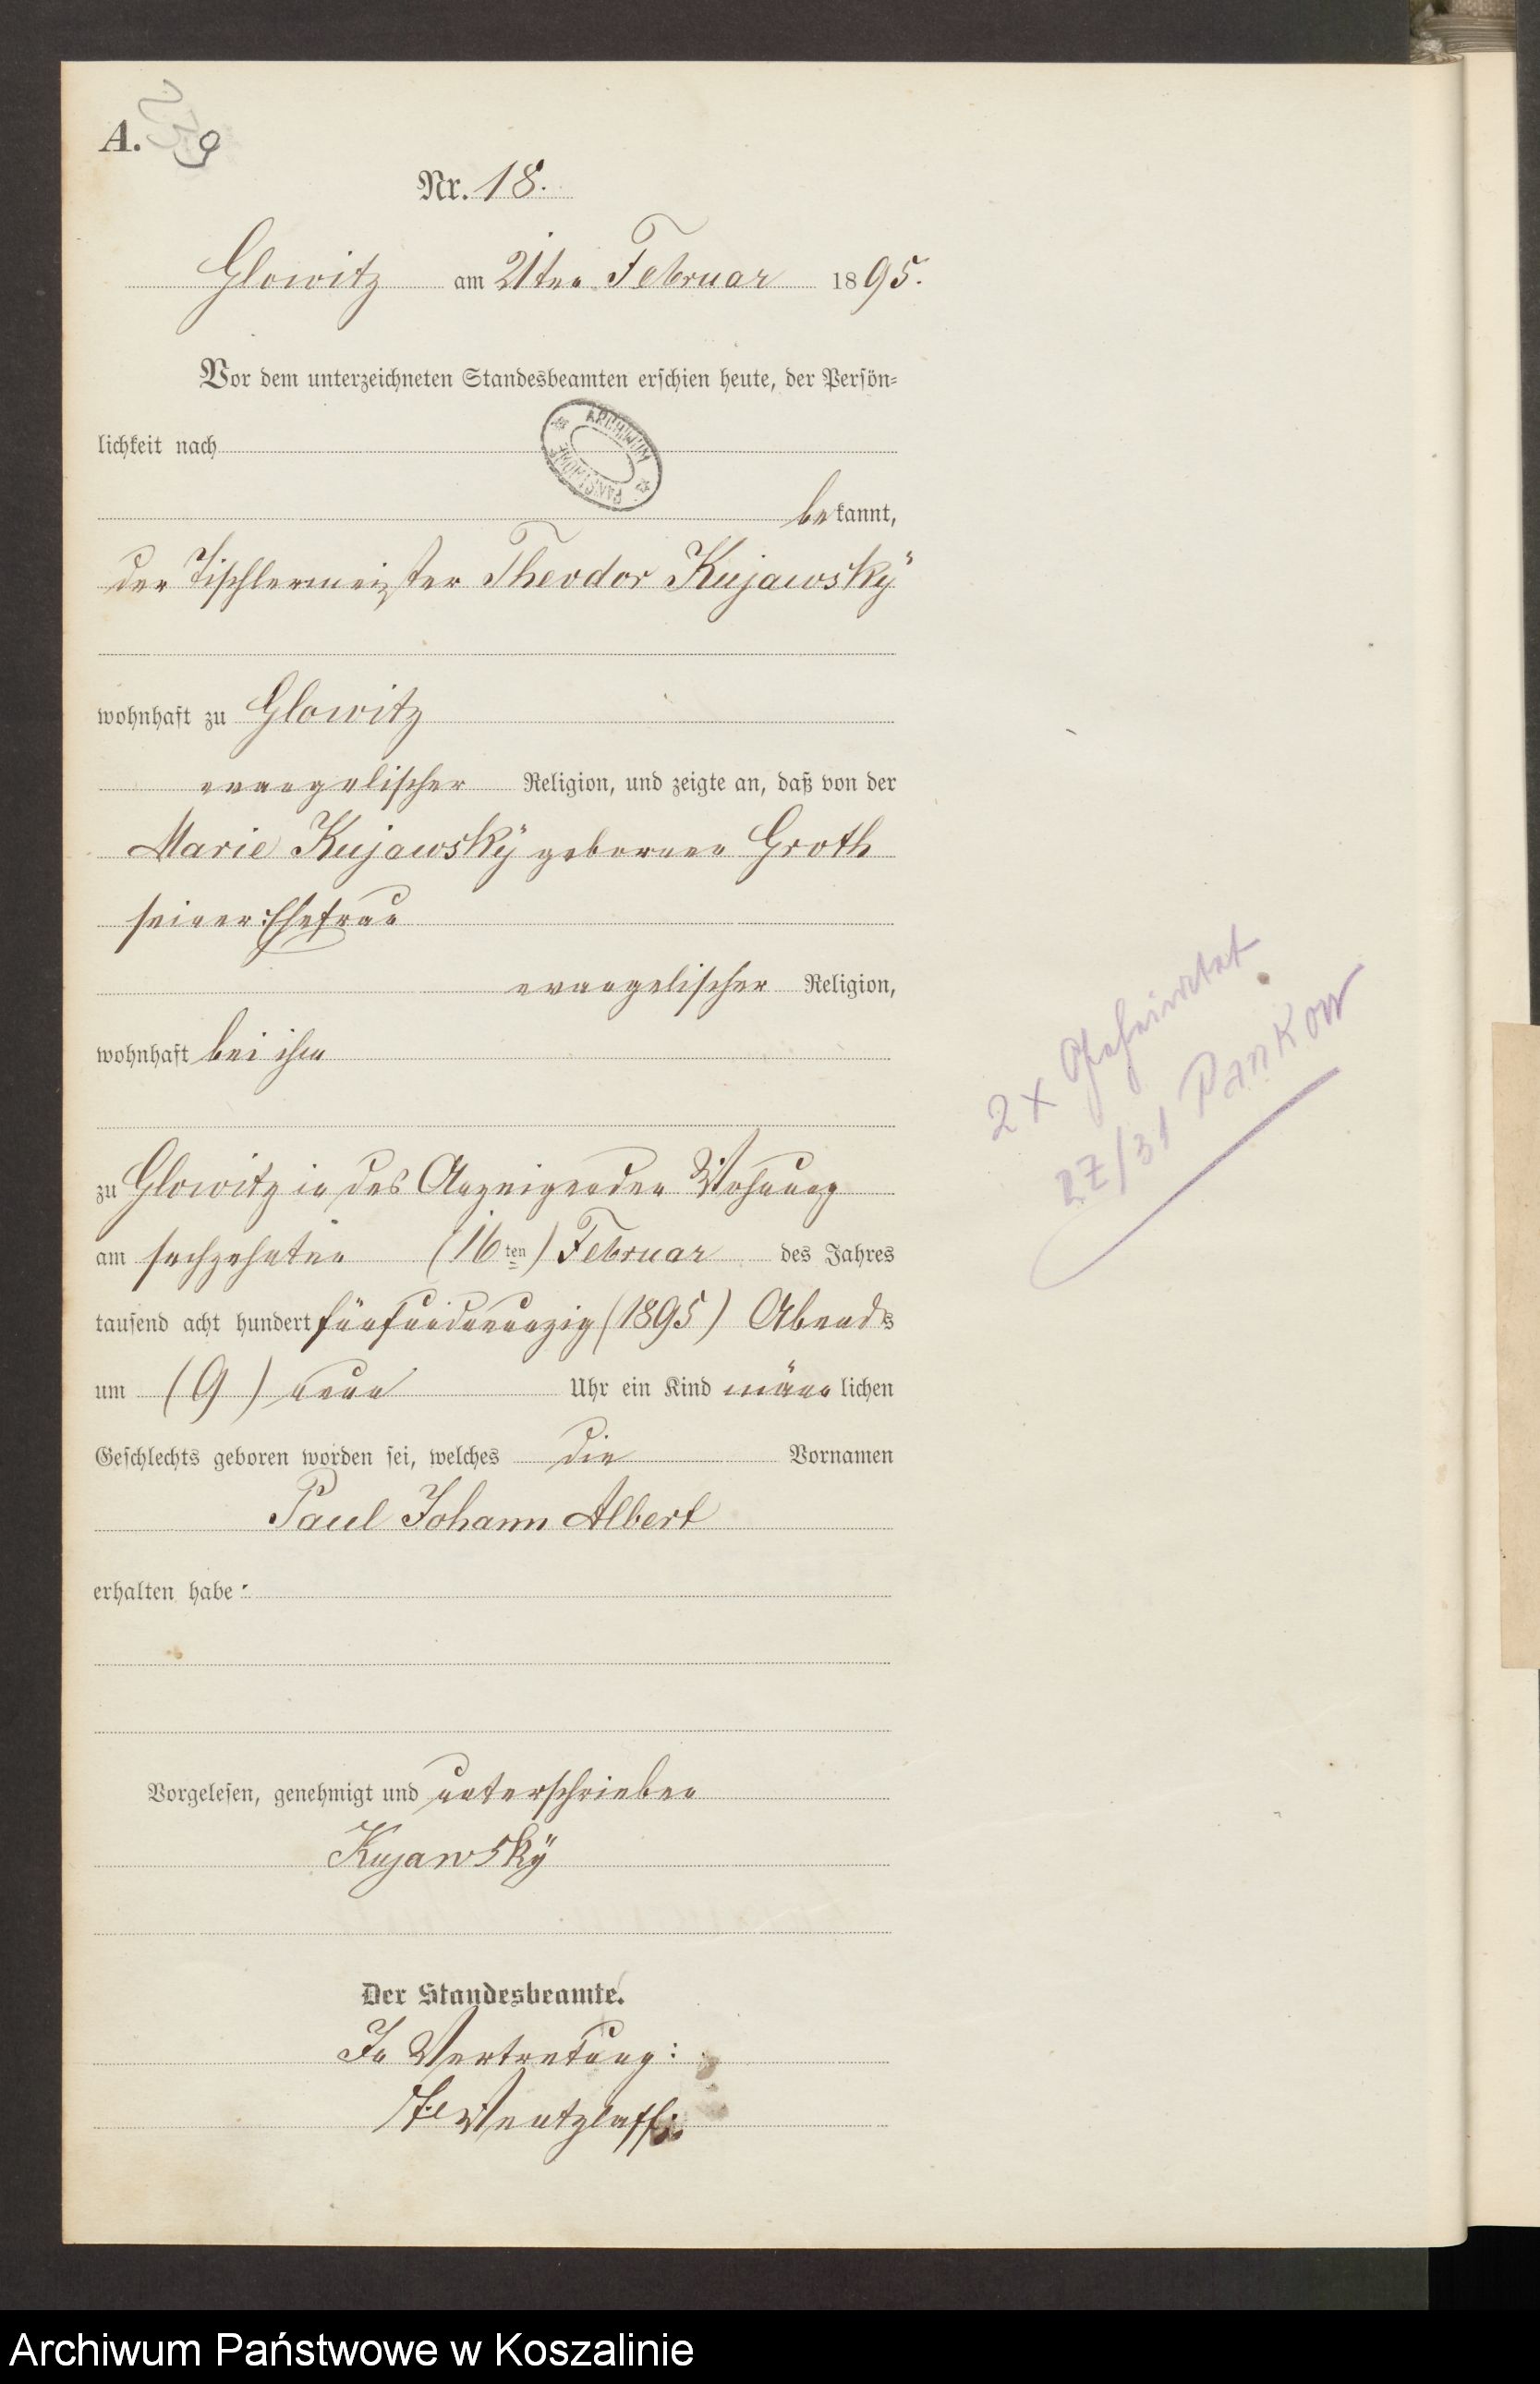 A. 9
Nr. 18.
Glowitz am 21ten Februar 1895.
Vor dem unterzeichneten Standesbeamten erschien heute, der Persön-
lichkeit nach
ARCHIWUM PAŃSTWOWE
bekannt,
der Tischlermeister Theodor Kujawskÿ
wohnhaft zu Glowitz
evangelischer Religion, und zeigte an, daß von der
Marie Kujawskÿ gebornen Groth
seiner Ehefrau
evangelischer Religion,
wohnhaft bei ihm
zu Glowitz in des Anzeigenden Wohnung
am sechzehnten (16ten) Februar des Jahres
tausend acht hundert fünfundneunzig (1895) Abends
um (9) neun Uhr ein Kind männlichen
Geschlechts geboren worden sei, welches die Vornamen
Paul Johann Albert
erhalten habe.
Vorgelesen, genehmigt und unterschrieben
Kujawskÿ
Der Standesbeamte.
In Vertretung:
Wentzlaff.
2x Geheiratet
27/31 Pankow
Archiwum Państwowe w Koszalinie